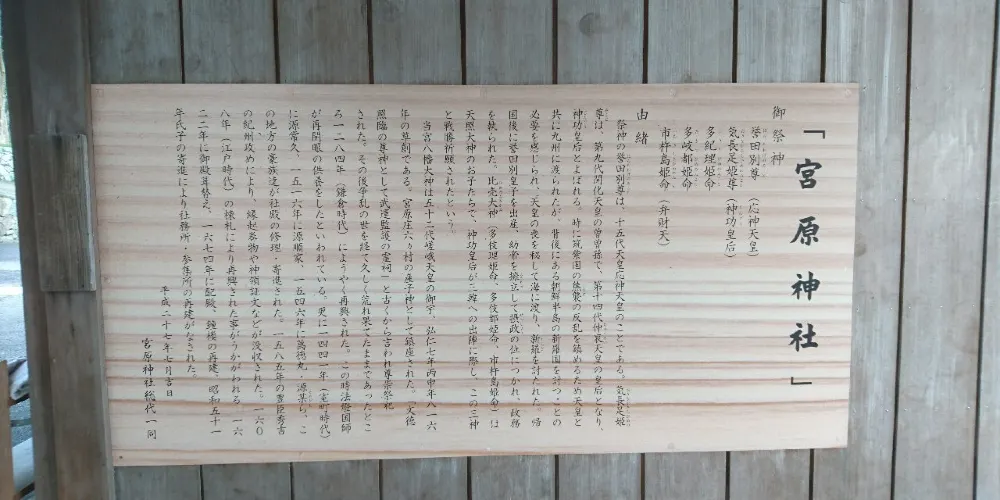 「宮原神社」
御祭神
誉田別尊（応神天皇）
気長足姫尊（神功皇后）
多紀理姫命
多岐都姫命
市杵島姫命（弁財天）
由緒
祭神の誉田別尊は、十五代天皇応神天皇のことである。気長足姫
尊は、第九代開化天皇の曽曽孫で、第十四代仲哀天皇の皇后となり、
神功皇后とよばれる。時に筑紫国の熊襲の反乱を鎮めるため天皇と
共に九州に渡られたが、背後にある朝鮮半島の新羅国を討つことの
必要を感じられ、天皇の喪を秘して海に渡り、新羅を討たれた。帰
国後に誉田別皇子を出産、幼帝を擁立して摂政の位につかれ、政務
を執られた。比売大神（多岐理姫命、多岐都姫命、市杵島姫命）は
天照大神のお子たちで、神功皇后が三韓への出陣に際し、この三神
と戦勝祈願されたという。
当宮八幡大神は五十二代嵯峨天皇の御宇、弘仁七年丙申年八一六
年の草創である。宮原庄六ヵ村の産子神として鎮座された。「文徳
照臨の尊神として武運監護の霊祠」と古くから言われ尊崇祭祀
された。その後争乱の世を経て久しく荒れ果てたままであったとこ
ろ一二八四年（鎌倉時代）にようやく再興された。この時法燈国師
が再開眼の供養をしたといわれている。更に一四四一年（室町時代）
に源常久、一五一六年に源順家、一五四六年に萬徳丸・源某ら、こ
の地方の豪族達が社殿の修理・寄進された。一五八五年の豊臣秀吉
の紀州攻めにより、縁起巻物や神領証文などが没収された。一六〇
八年（江戸時代）の棟札により再興された事がうかがわれる。一六
二二年に御殿葺替え、一六七四年に配殿、鐘楼の再建、昭和五十一
年氏子の寄進により社務所・参集所の再建がなされた。
平成二十七年七月吉日
宮原神社総代一同